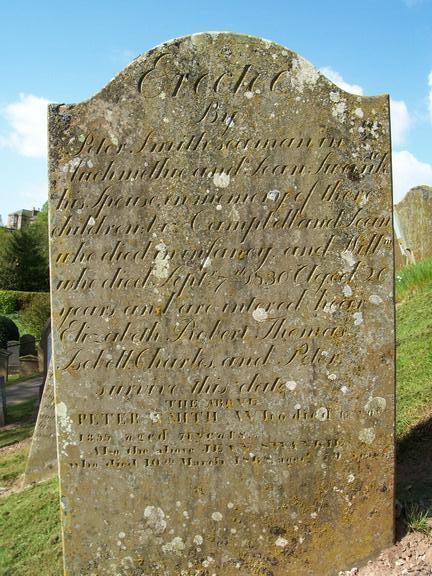 Erected
By
Peter Smith seaman in
Auchmithie and Jean
his spouse in memory of their
children Campbell and Jean
who died in infancy and
who died Sept 7th 1836 Aged 20
years and are interred hear
Elizabeth Robert Thomas
Isobell Charles and Peter
survive this date
THE ABOVE
PETER SMITH Who died
1855 aged 71 years
Also the above
who died 10th March aged years